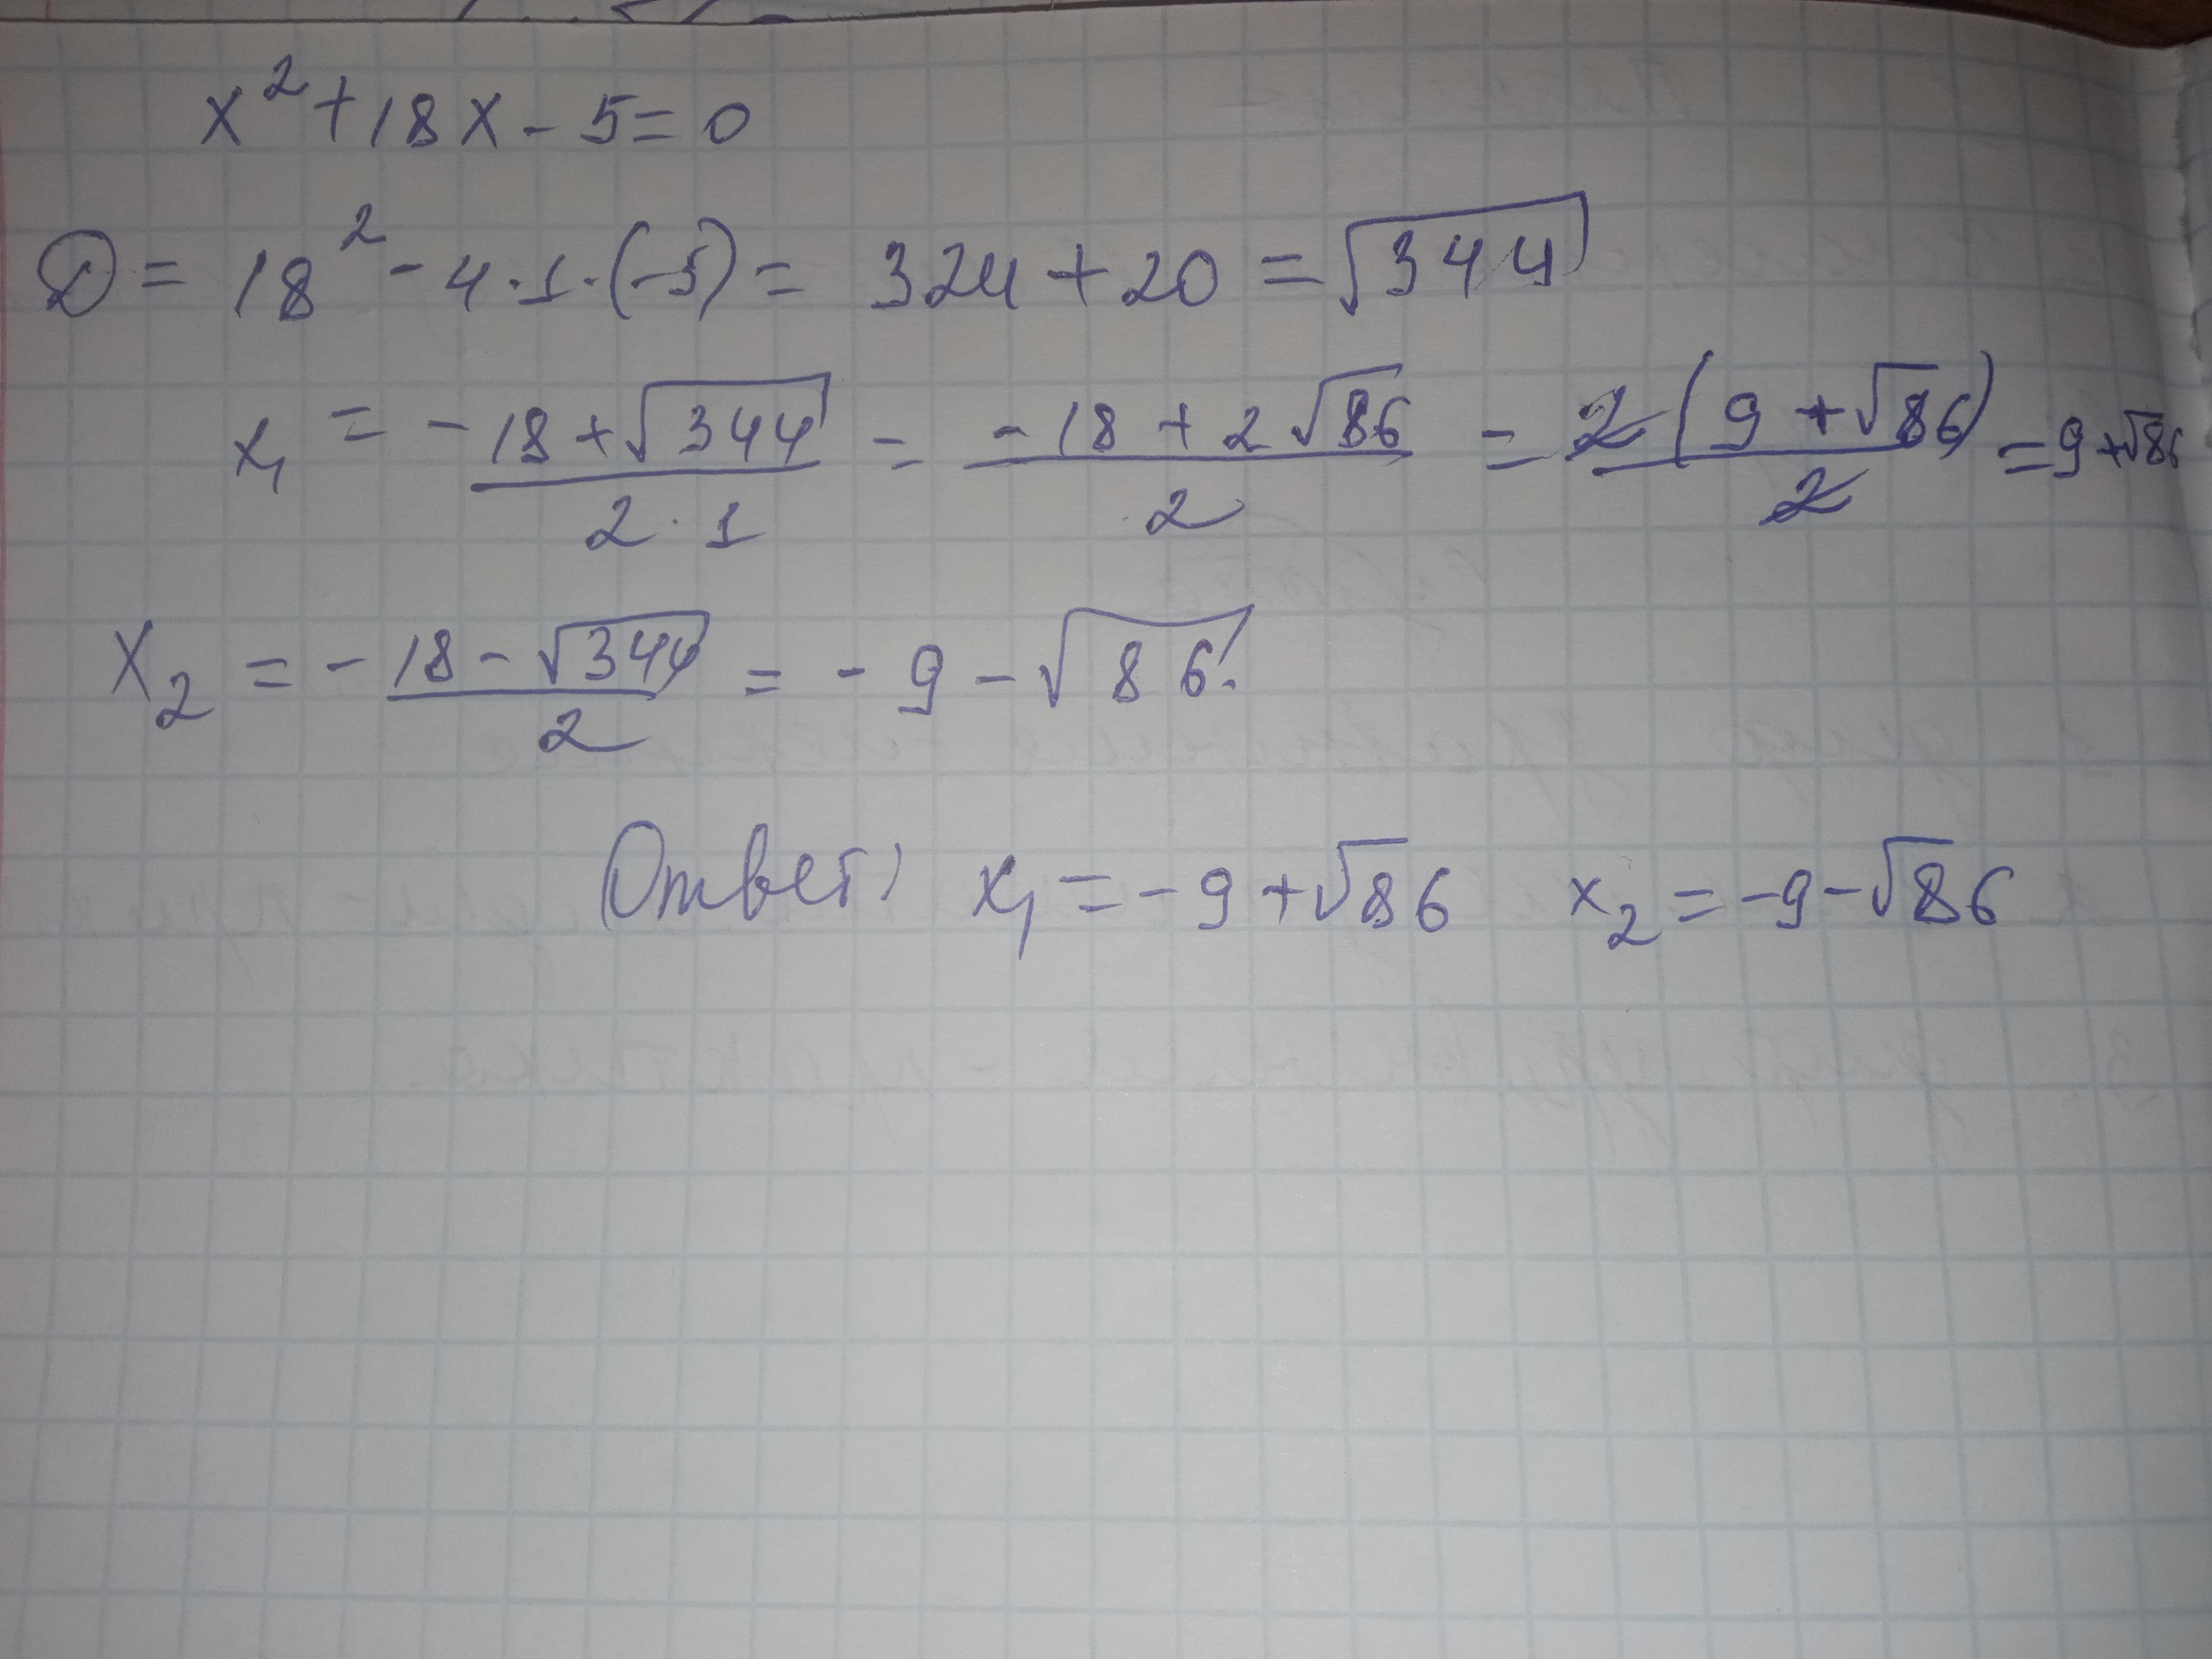 x² + 18x - 5 = 0
D = 18² - 4 · 1 · (-5) = 324 + 20 = √344
x₁ = -18 + √344 / 2 · 1 = -18 + 2√86 / 2 = 2(9 + √86) / 2 = 9 + √86
x₂ = -18 - √344 / 2 = -9 - √86.
Ответ: x₁ = -9 + √86 x₂ = -9 - √86